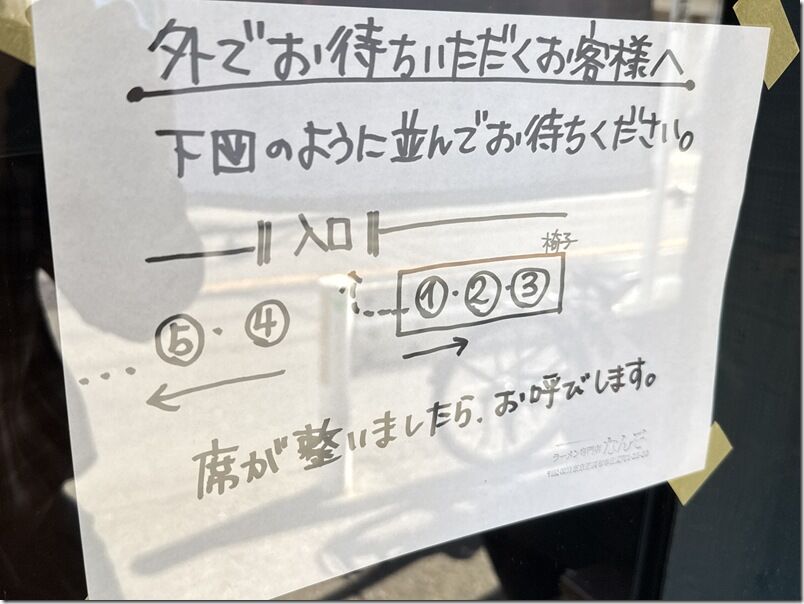 外でお待ちいただくお客様へ
下図のように並んでお待ちください。
入口
椅子
①・②・③
⑤・④
・・・
席が整いましたら、お呼びします。
ラーメン専門店 なんぞ